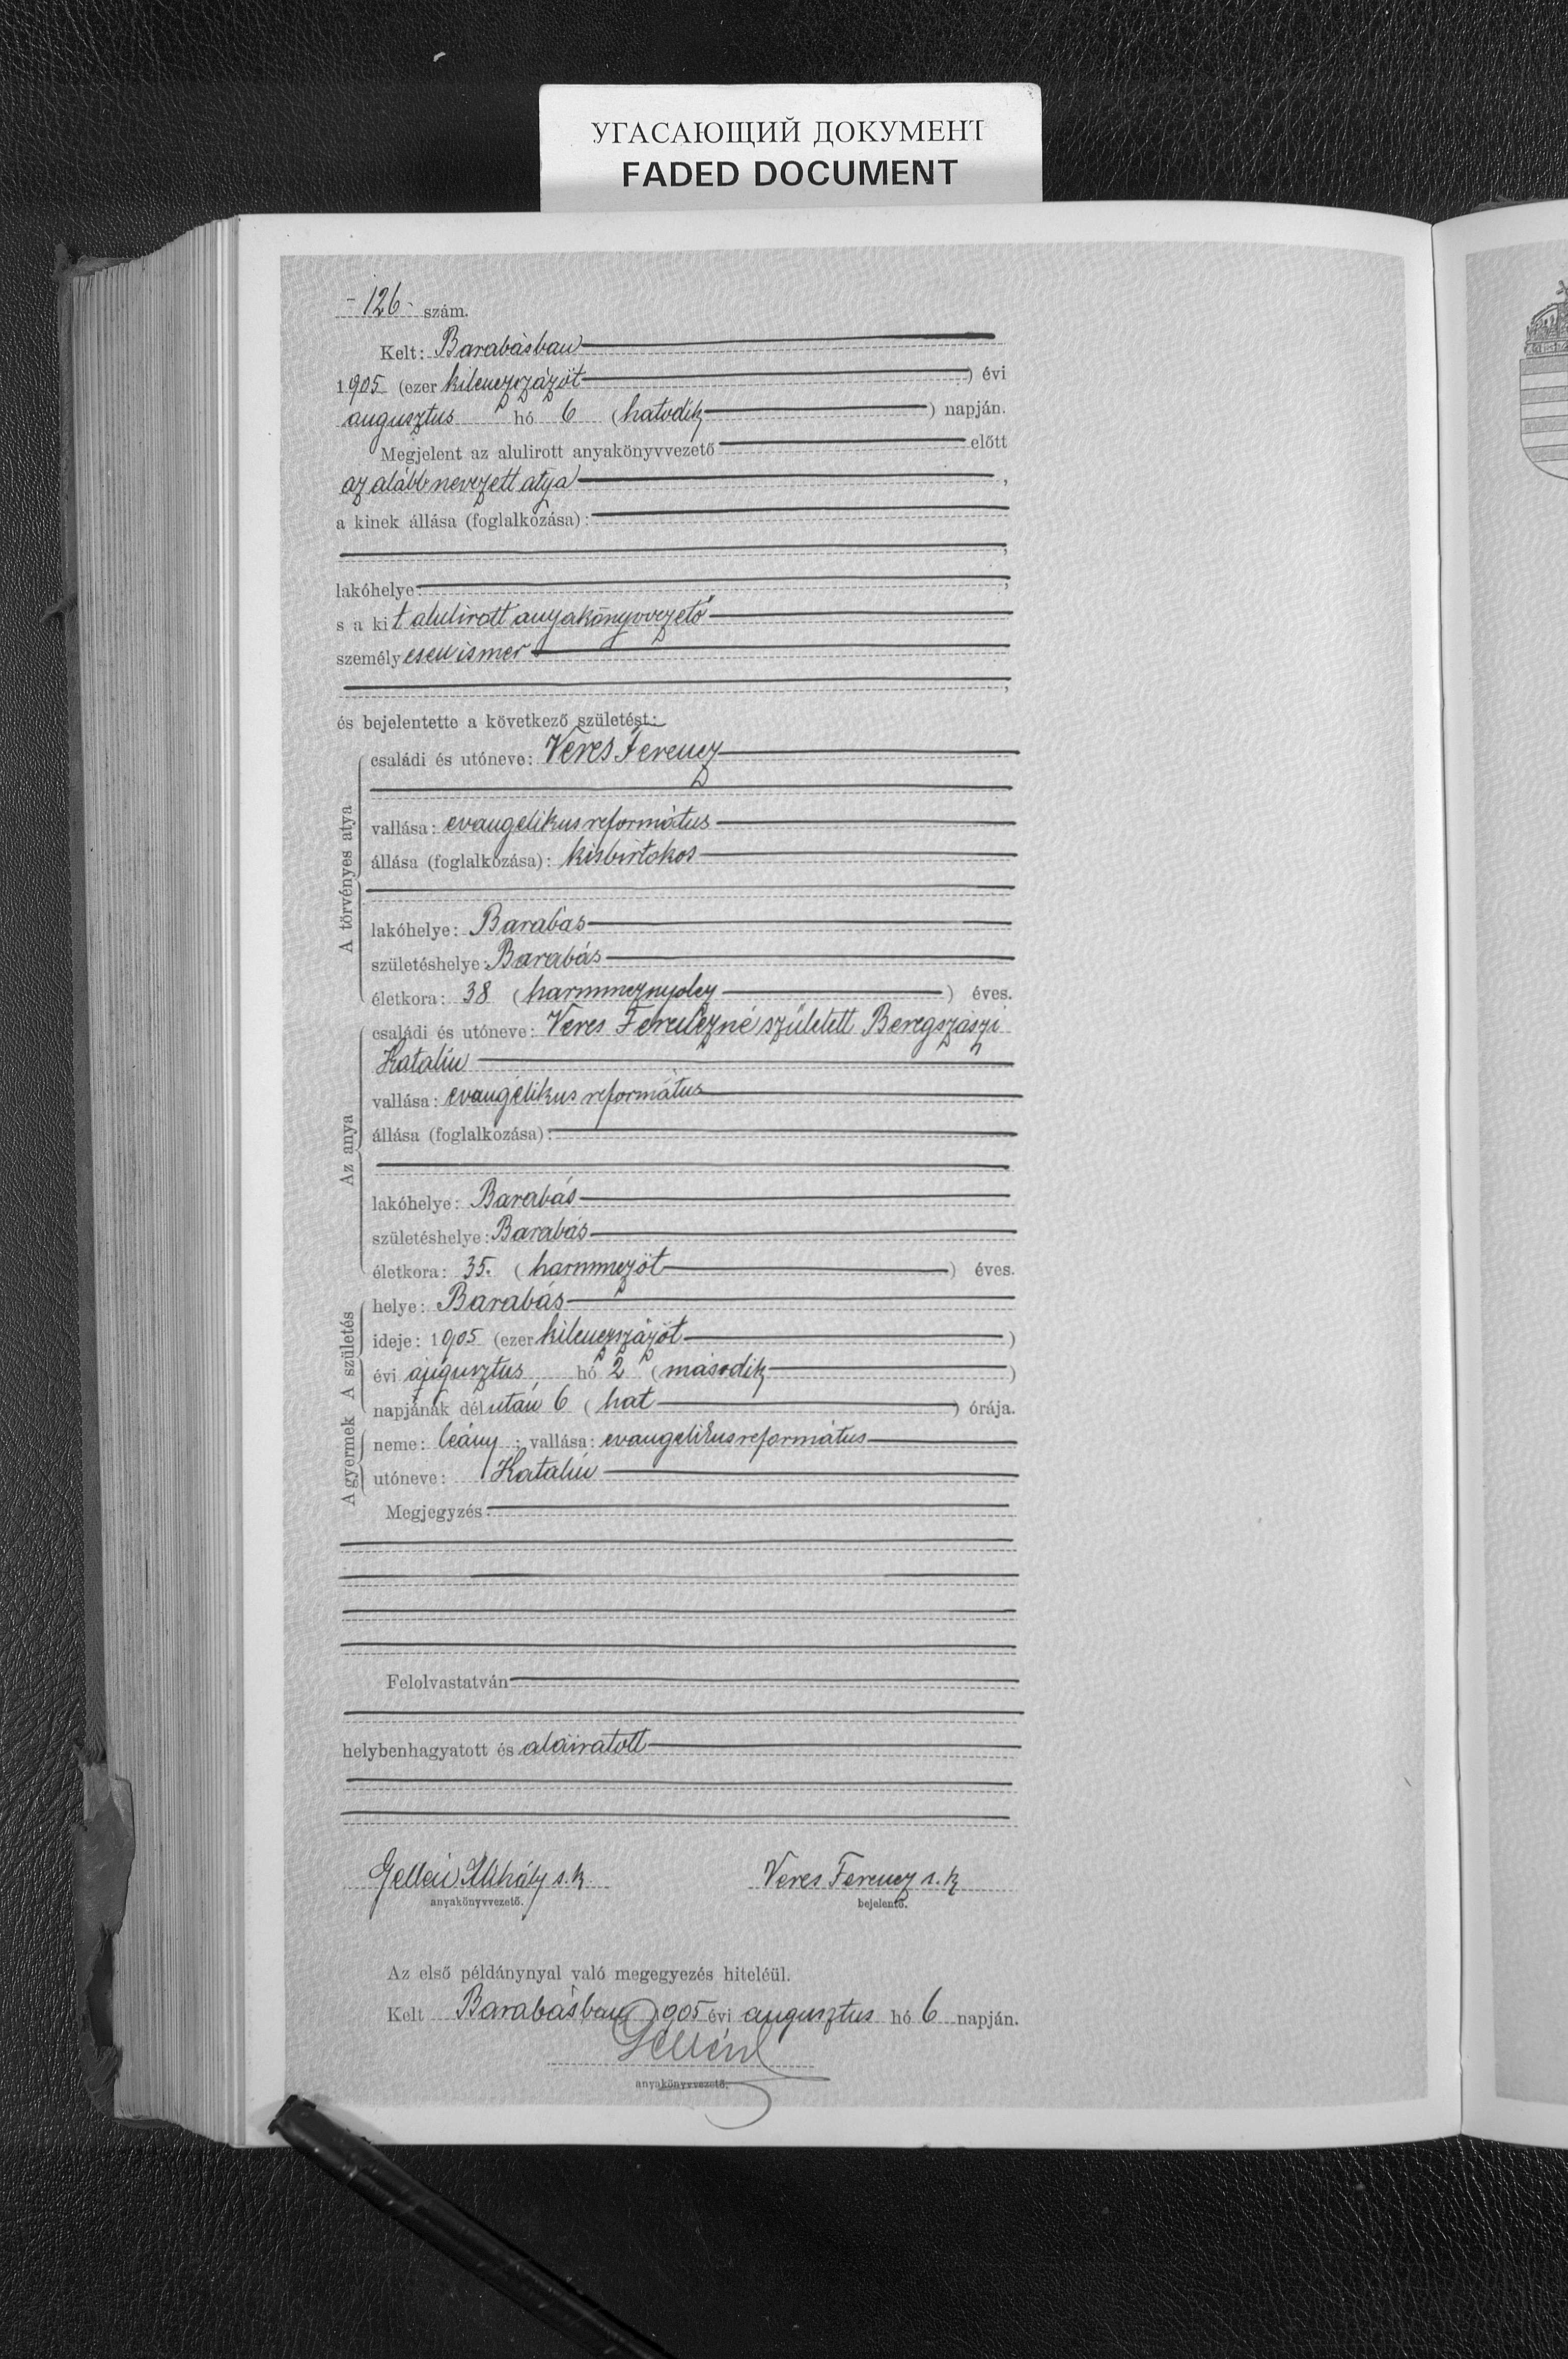 УГАСАЮЩИЙ ДОКУМЕНТ
FADED DOCUMENT
-126- szám.
Kelt: Barabásban
1905 (ezer kilenczszázöt) évi
augusztus hó 6 (hatodik) napján.
Megjelent az alulirott anyakönyvvezető előtt
az alább nevezett atya,
a kinek állása (foglalkozása):
lakóhelye:
s a kit alulirott anyakönyvvezető
személyesen ismer
és bejelentette a következő születést:
A törvényes atya
családi és utóneve: Veres Ferencz
vallása: evangelikus református
állása (foglalkozása): kisbirtokos
lakóhelye: Barabás
születéshelye: Barabás
életkora: 38 (harmincznyolcz) éves.
Az anya
családi és utóneve: Veres Ferenczné született Beregszászi
Katalin
vallása: evangélikus református
állása (foglalkozása):
lakóhelye: Barabás
születéshelye: Barabás
életkora: 35. (harminczöt) éves.
A születés
helye: Barabás
ideje: 1905 (ezer kilenczszázöt)
évi augusztus hó 2 (második)
napjának délután 6 (hat) órája.
A gyermek
neme: leány; vallása: evangelikus református
utóneve: Katalin
Megjegyzés:
Felolvastatván
helybenhagyatott és aláiratott
Gellén Mihály s. k. Veres Ferencz s. k
anyakönyvvezető. bejelentő.
Az első példánynyal való megegyezés hiteléül.
Kelt Barabásban 1905 évi augusztus hó 6 napján.
Gellén
anyakönyvvezető.